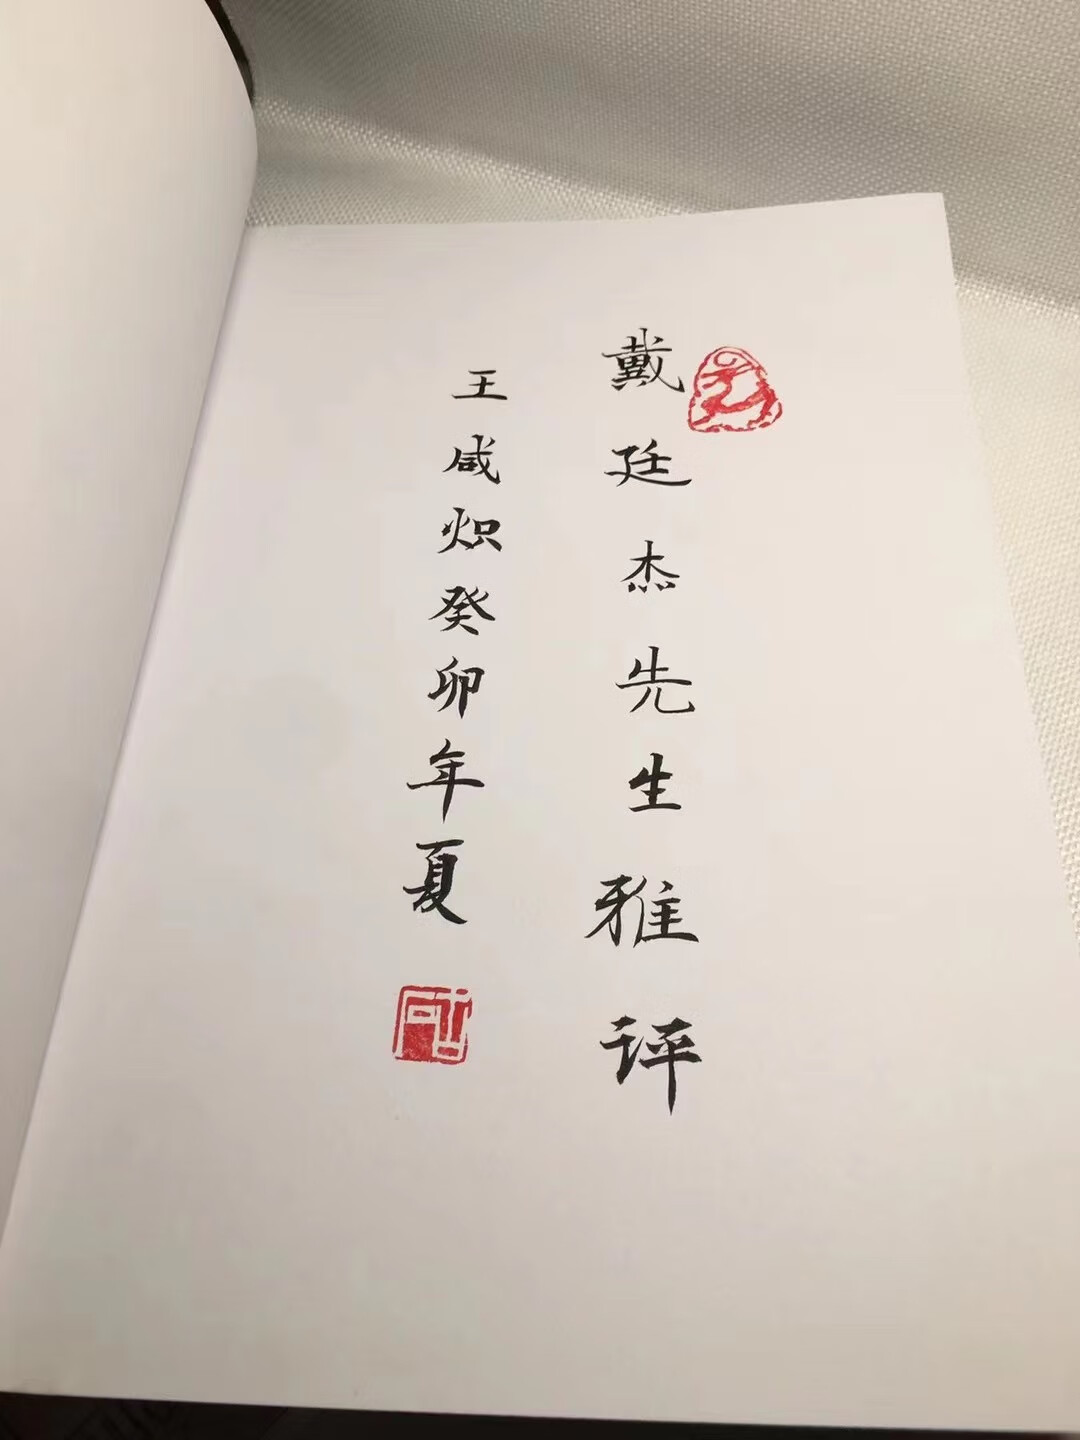 戴廷杰先生雅评
王咸炽癸卯年夏